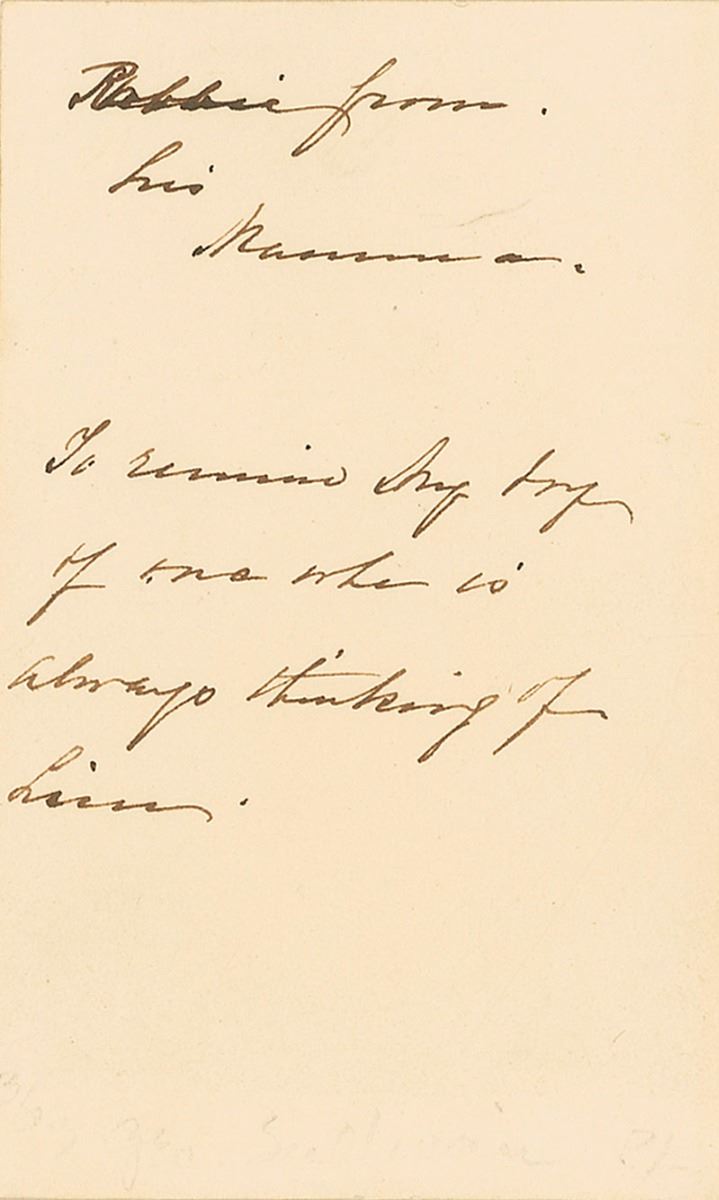 Robbie from.
his
Mamma.
To remind My boy
of one who is
always thinking of
him.